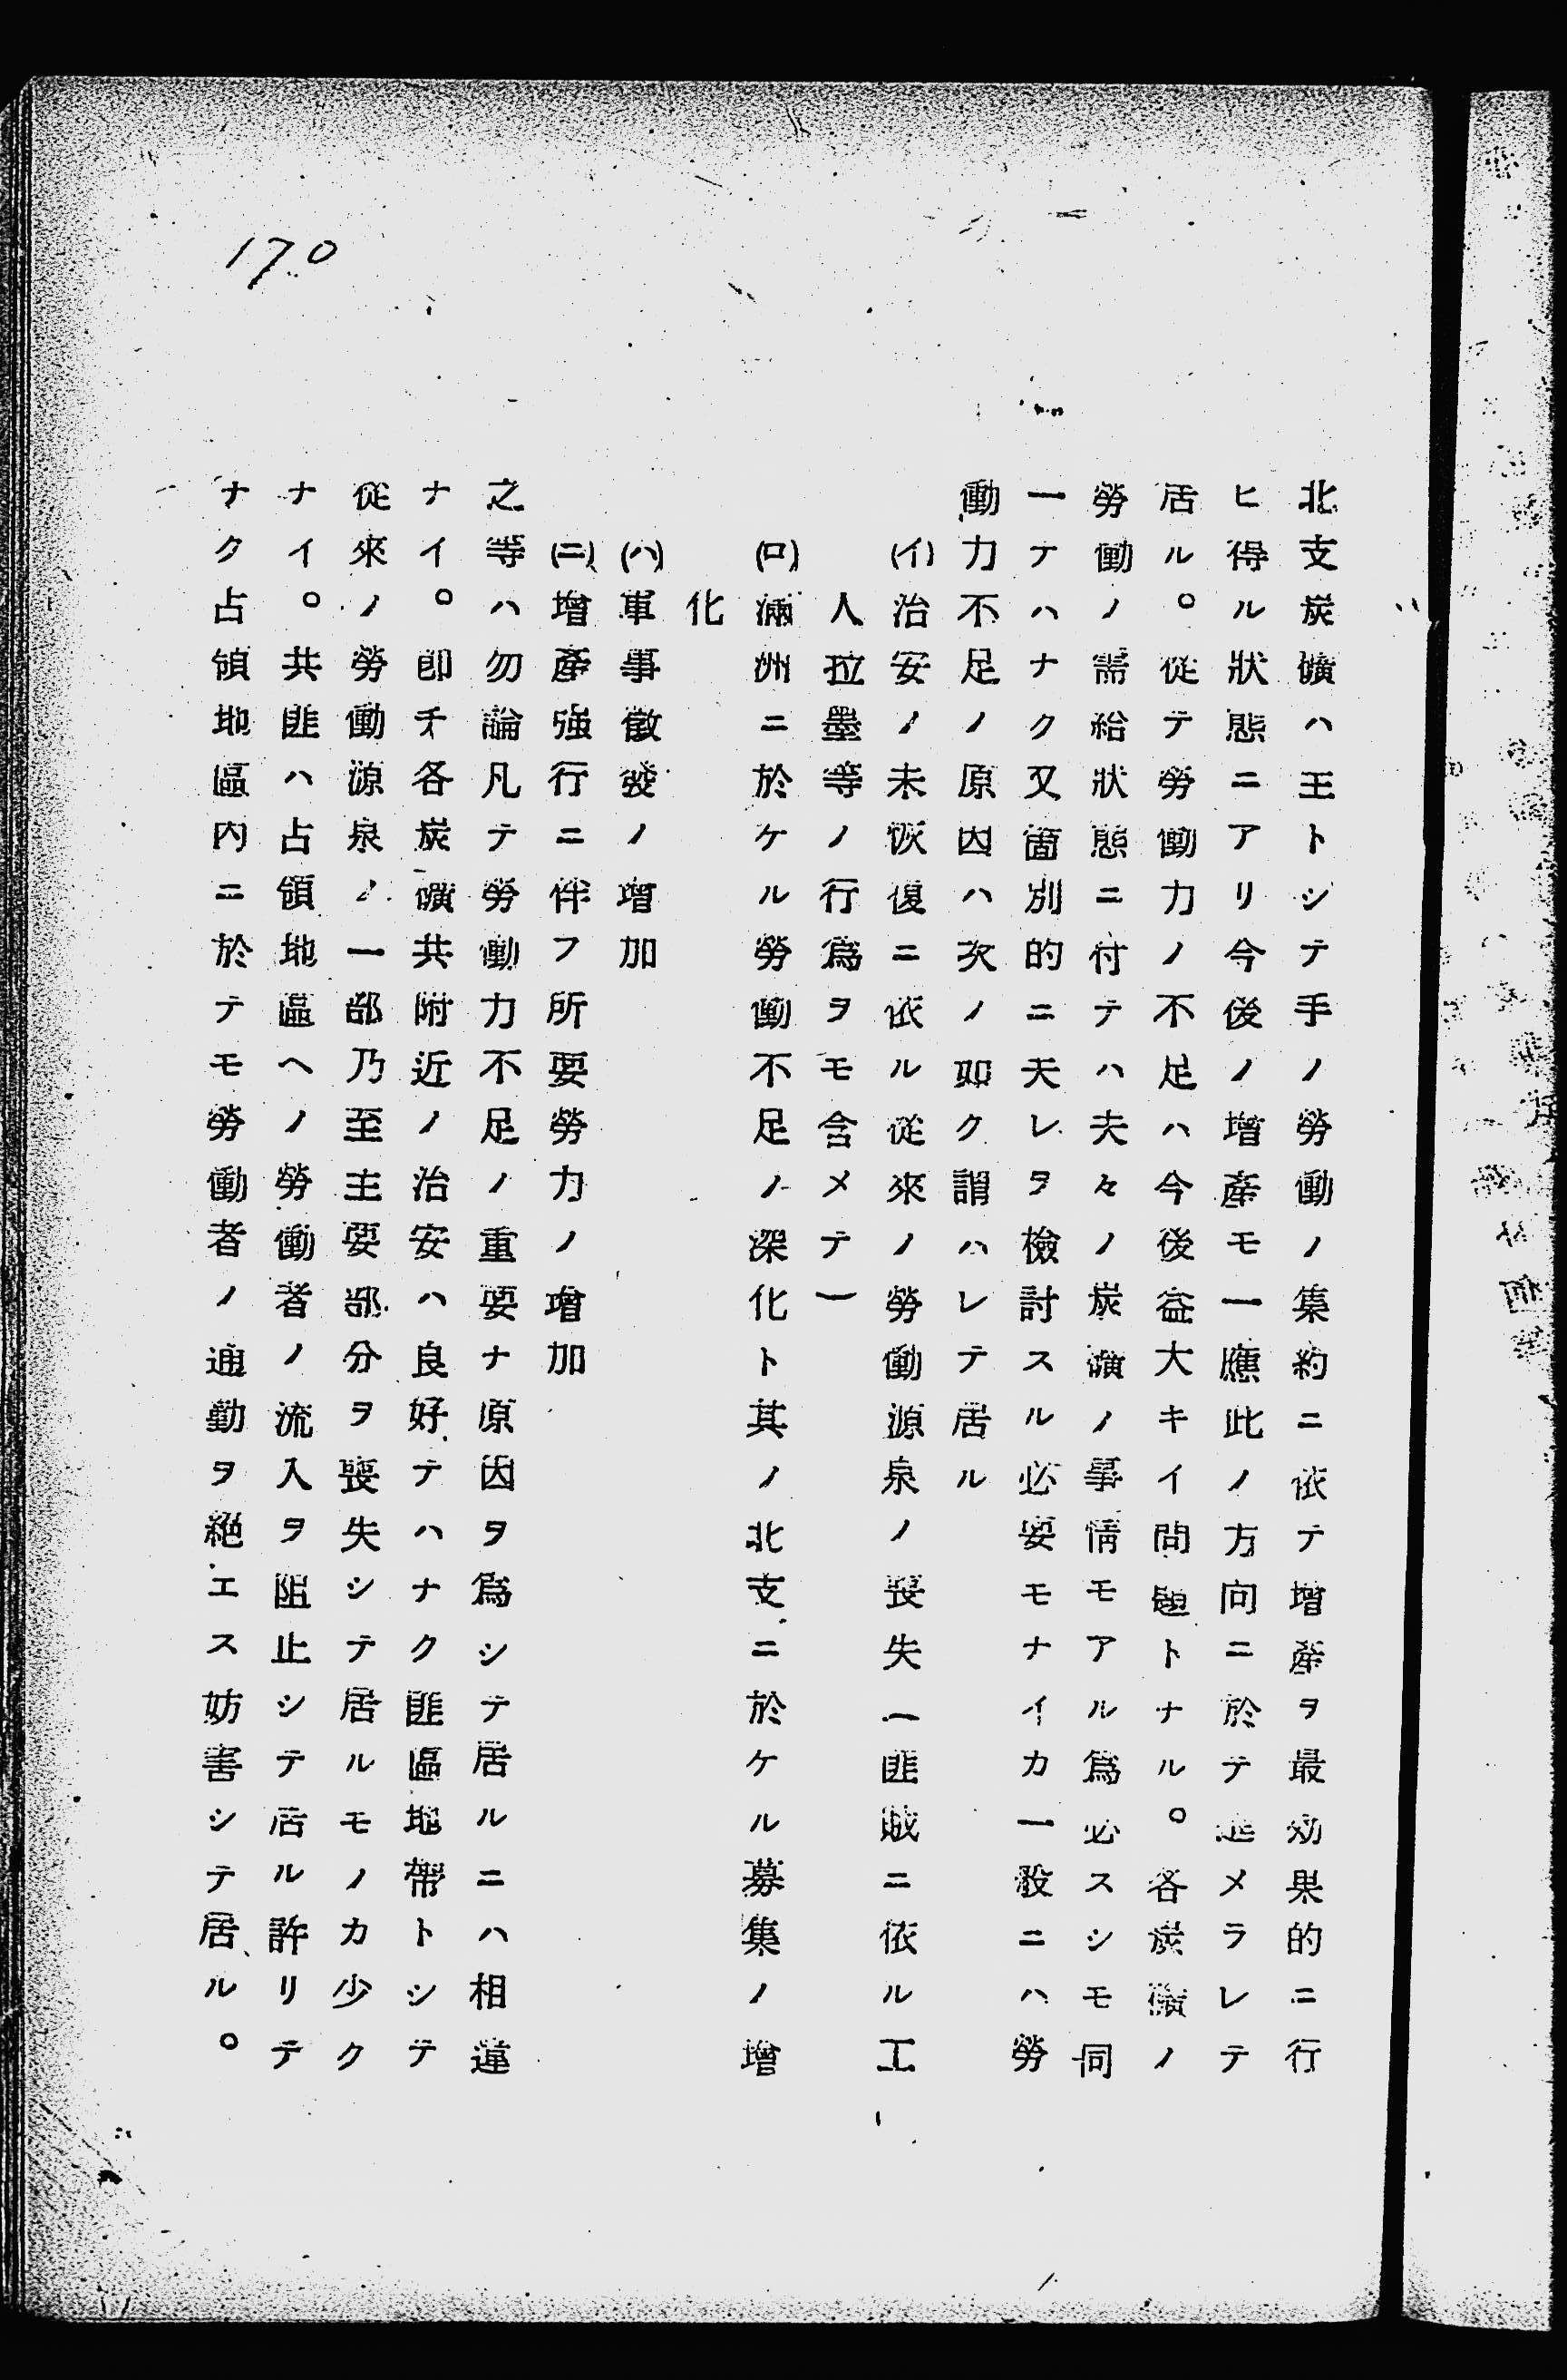 170
北支炭礦ハ王トシテ手ノ勞働ノ集約ニ依テ增產ヲ最効果的ニ行
ヒ得ル狀態ニアリ今後ノ增產モ一應此ノ方向ニ於テ進メラレテ
居ル。從テ勞働力ノ不足ハ今後益大キイ問題トナル。各炭礦ノ
勞働ノ需給狀態ニ付テハ夫々ノ炭礦ノ事情モアル爲必スシモ同
一テハナク又箇別的ニ夫レヲ檢討スル必要モナイカ一般ニハ勞
働力不足ノ原因ハ次ノ如ク謂ハレテ居ル
(イ)治安ノ未恢復ニ依ル從來ノ勞働源泉ノ喪失︵匪賊ニ依ル工
人拉墨等ノ行爲ヲモ含メテ︶
(ロ)滿洲ニ於ケル勞働不足ノ深化ト其ノ北支ニ於ケル募集ノ增
化
(ハ)軍事徵發ノ增加
(ニ)增產强行ニ伴フ所要勞力ノ增加
之等ハ勿論凡テ勞働力不足ノ重要ナ原因ヲ爲シテ居ルニハ相違
ナイ。卽チ各炭礦共附近ノ治安ハ良好テハナク匪區地帶トシテ
從來ノ勞働源泉ノ一部乃至主要部分ヲ喪失シテ居ルモノカ少ク
ナイ。共匪ハ占領地區ヘノ勞働者ノ流入ヲ阻止シテ居ル許リテ
ナク占領地區內ニ於テモ勞働者ノ通勤ヲ絕エス妨害シテ居ル。